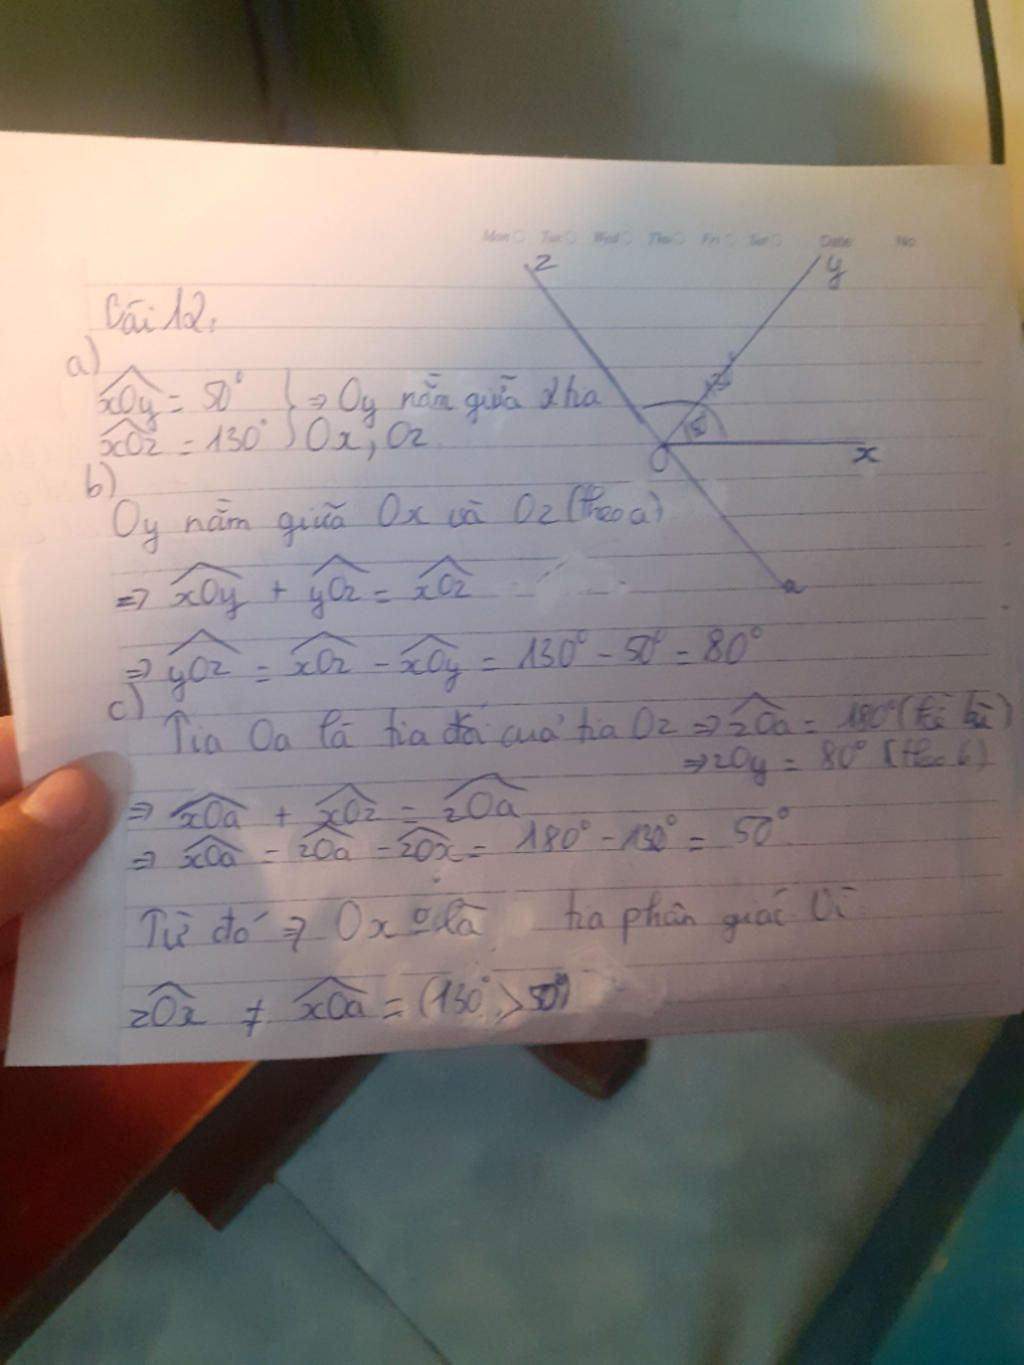 Mon Tue Wed Thu Fri Sat Date No
z
y
Bài 12:
a)
xOy = 50° } => Oy nằm giữa 2 tia
xOz = 130° } Ox, Oz
O
x
b)
Oy nằm giữa Ox và Oz (theo a)
a
=> xOy + yOz = xOz
=> yOz = xOz - xOy = 130° - 50° = 80°
c)
Tia Oa là tia đối của tia Oz => zOa = 180° (kề bù)
=> zOy = 80° (theo b)
=> xOa + xOz = zOa
=> xOa = zOa - zOx = 180° - 130° = 50°
Từ đó => Ox là tia phân giác vì
zOx ≠ xOa = (130° > 50°)